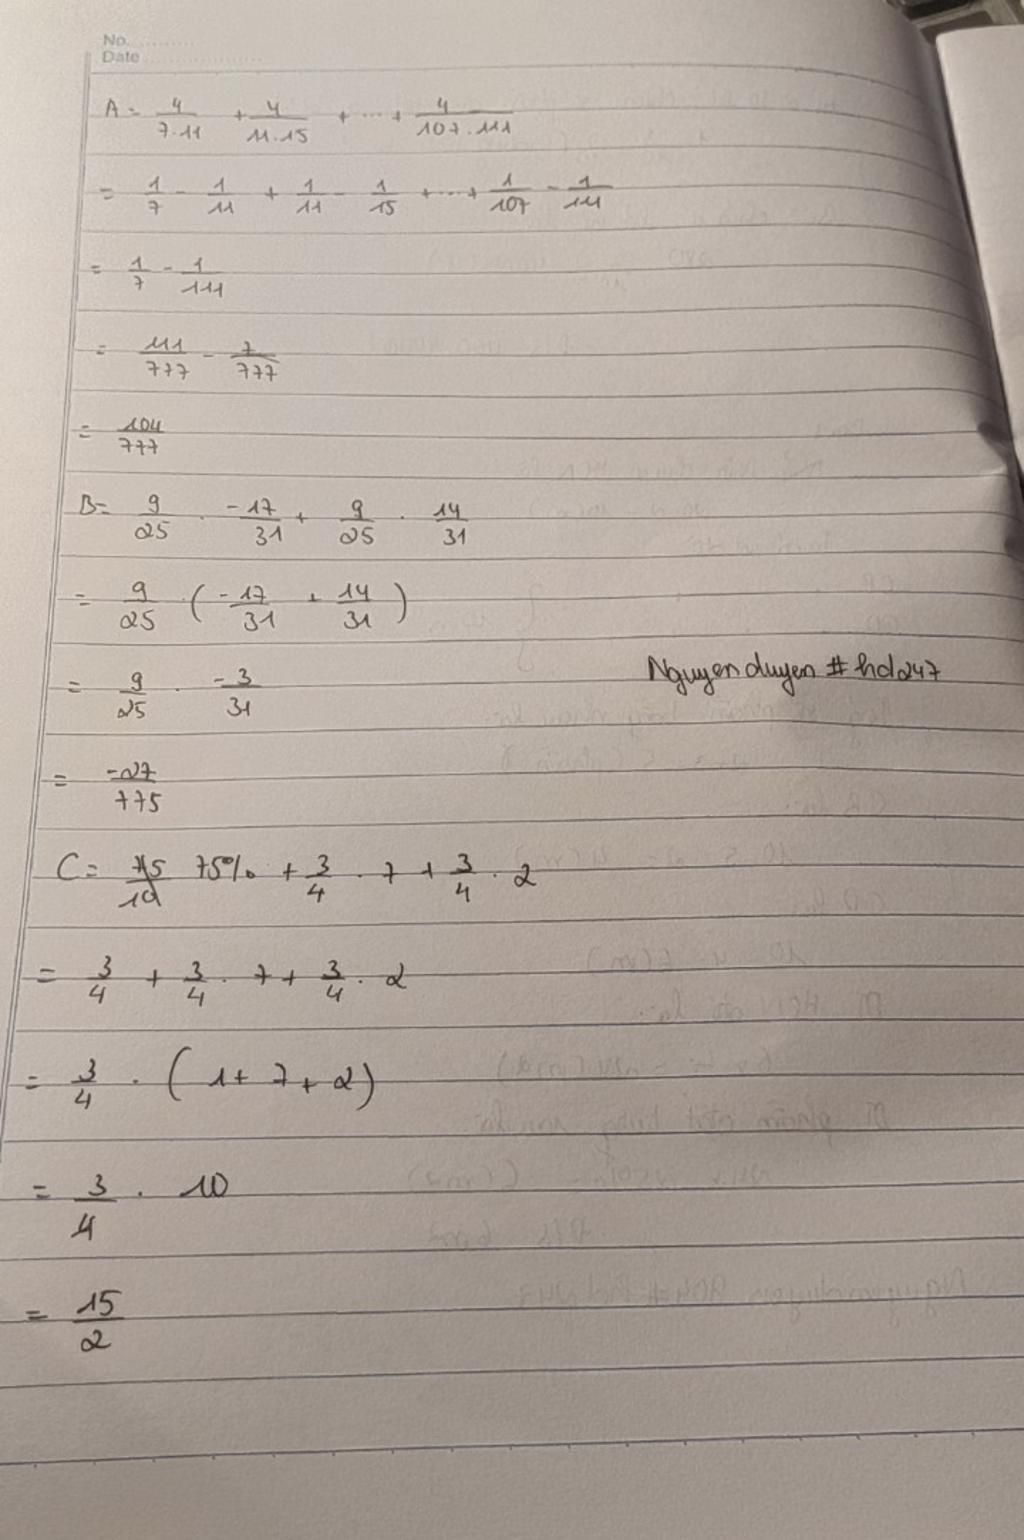 No.
Date
A = 4/7.11 + 4/11.15 + ... + 4/107.111
= 1/7 - 1/11 + 1/11 - 1/15 + ... + 1/107 - 1/111
= 1/7 - 1/111
= 111/777 - 7/777
= 104/777
B = 9/25 . -17/31 + 9/25 . 14/31
= 9/25 . (-17/31 + 14/31)
= 9/25 . -3/31
Nguyenduyen # hd247
= -27/775
C = 75% + 3/4 . 7 + 3/4 . 2
= 3/4 + 3/4 . 7 + 3/4 . 2
= 3/4 . (1 + 7 + 2)
= 3/4 . 10
= 15/2